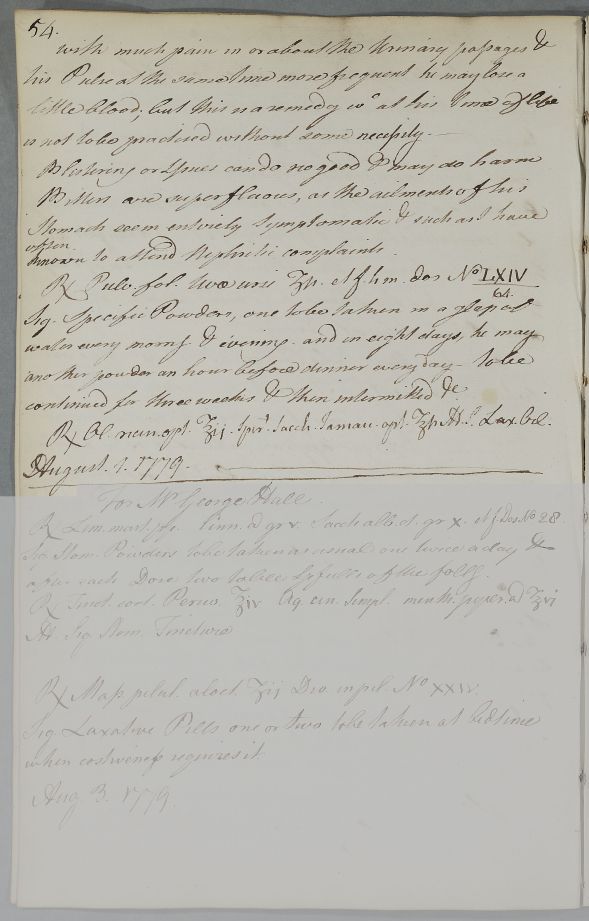 54.
with much pain in or about the Urinary passages &
his Pulse at the same time more frequent he may lose a
little blood; but this is a remedy wc. at his time of life
is not to be practised without some necessity.—
Blistering or Issues can do no good & may do harm
Bitters are superfluous, as the ailments of his
Stomach seem entirely Symptomatic & such as I have
often
known to attend Nephritic complaints.
℞ Pulv. fol. Uvæ ursi ʒſs. M f. h.m. dos No LXIV
64.
Sig. Specific Powders, one to be taken in a glass of
water every morng. & evening. and in eight days, he may
another powder an hour before dinner every day— to be
continued for three weeks & then intermitted &c
℞ Ol. ricin. opt. ℥ij. Spt. Sacch. Jamaic. opt. ℥ſs M. S. Lax. Oil.
August. 1. 1779.
For Mr George Hall.
℞ Lim. mart. ppt. Cinn. a gr v. Sacch alb. ct. gr x. M f. Dos. No 28.
Sig. Stom. Powders to be taken as usual one twice a day &
after each Dose two table spfulls of the follg.
℞ Tinct. cort. Peruv. ℥iv Aq. cin. Simpl. menth. piper. a ℥vi
M. Sig Stom. Tincture
℞ Mass pilul. aloet. ʒij Div. in pil. No XXIV.
Sig. Laxative Pills one or two to be taken at bedtime
when costiveness requires it.
Aug. 3. 1779.